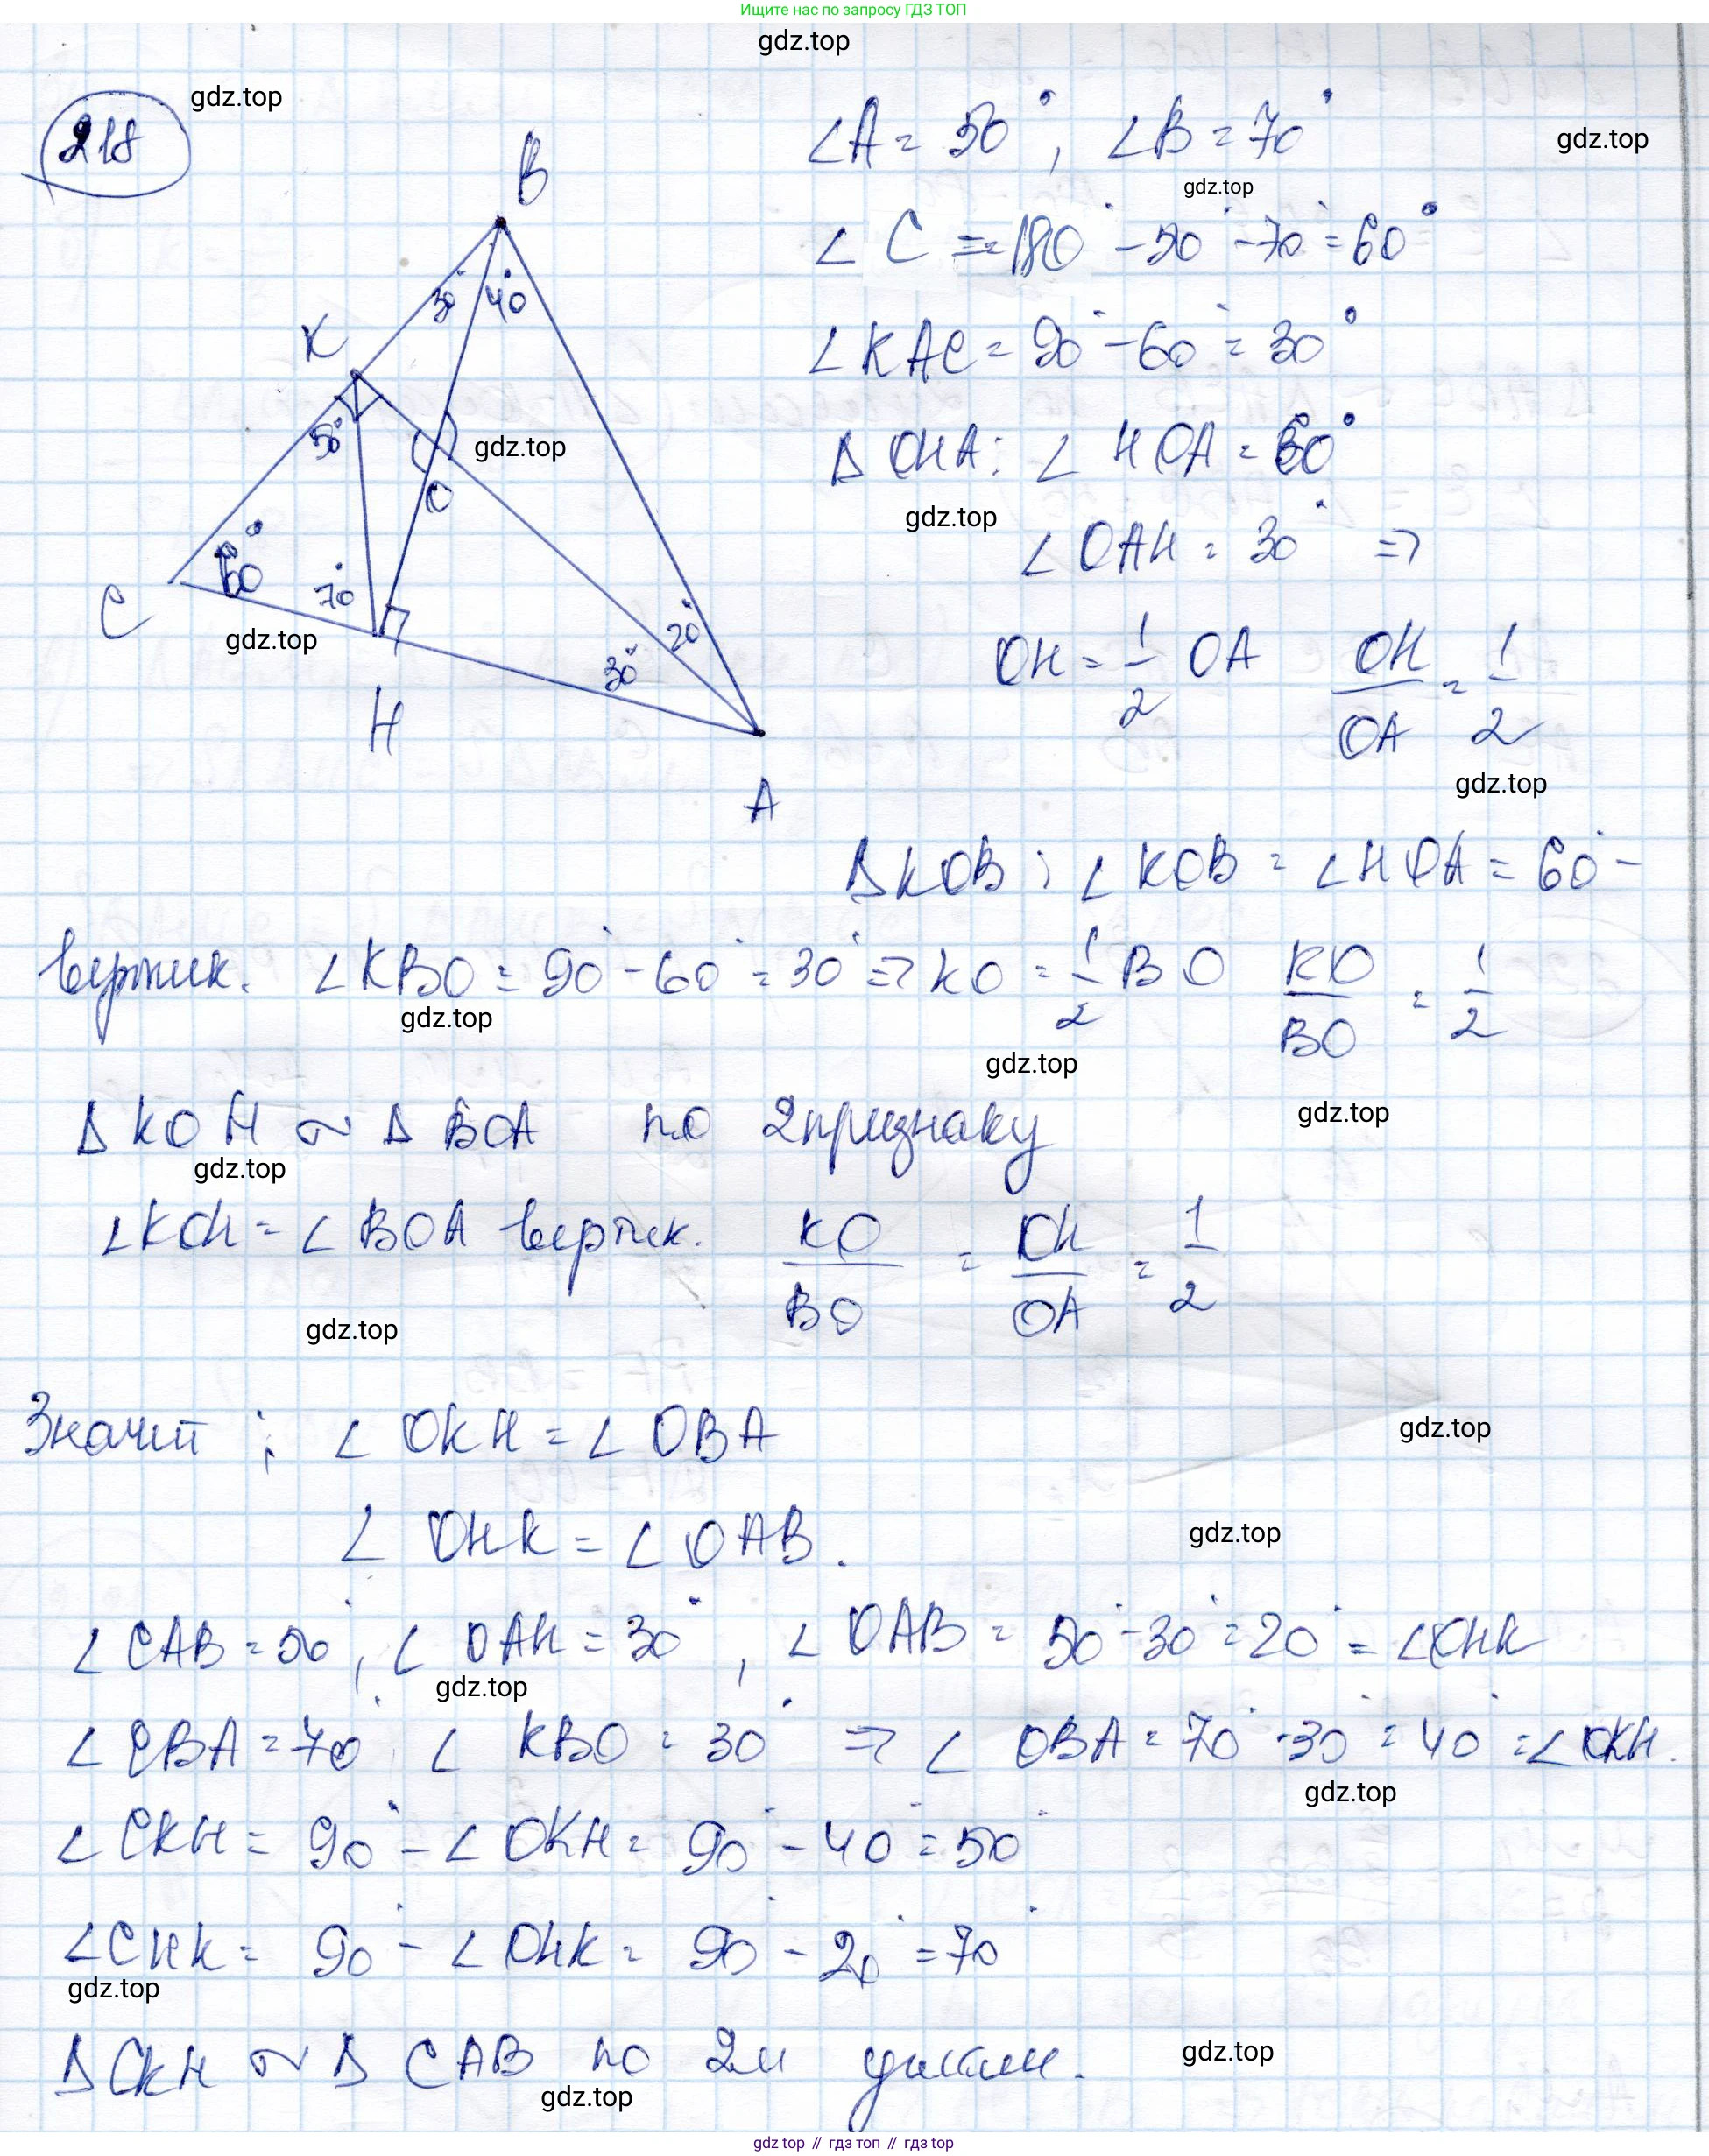 Ищите нас по запросу ГДЗ ТОП
gdz.top
218
gdz.top
∠A = 50°, ∠B = 70°
gdz.top
B
gdz.top
∠C = 180° - 50° - 70° = 60°
30° 40°
K
∠KAC = 90° - 60° = 30°
50°
gdz.top
O
Δ OHA: ∠HOA = 60°
gdz.top
∠OAH = 30° =>
60°
70°
C
20°
gdz.top
30°
H
OH = 1/2 OA OH/OA = 1/2
A
gdz.top
Δ KOB; ∠KOB = ∠HOA = 60° -
вертик. ∠KBO = 90° - 60° = 30° => KO = 1/2 BO KO/BO = 1/2
gdz.top
gdz.top
gdz.top
Δ KOH ~ Δ BOA по 2 признаку
gdz.top
∠KOH = ∠BOA вертик. KO/BO = OH/OA = 1/2
gdz.top
Значит; ∠OKH = ∠OBA
gdz.top
∠OHK = ∠OAB.
gdz.top
∠CAB = 50°, ∠OAH = 30°, ∠OAB = 50° - 30° = 20° = ∠OHK
gdz.top
∠CBA = 70° ∠KBO = 30° => ∠OBA = 70° - 30° = 40° = ∠OKH.
gdz.top
∠CKH = 90° - ∠OKH = 90° - 40° = 50°
∠CHK = 90° - ∠OHK = 90° - 20° = 70°
gdz.top
Δ CKH ~ Δ CAB по 2м углам.
gdz.top
gdz.top
gdz top // гдз топ // гдз top